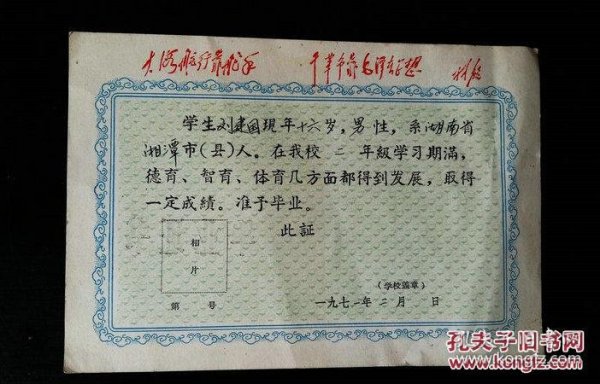 大海航行靠舵手 干革命靠毛泽东思想 林彪
学生刘建国现年十六岁，男性，系湖南省
湘潭市(县)人。在我校二年級学习期满，
德育、智育、体育几方面都得到发展，取得
一定成績。准予毕业。
此証
相
片
(学校盖章)
第 号
一九七一年二月 日
孔夫子旧书网
www.kongfz.com